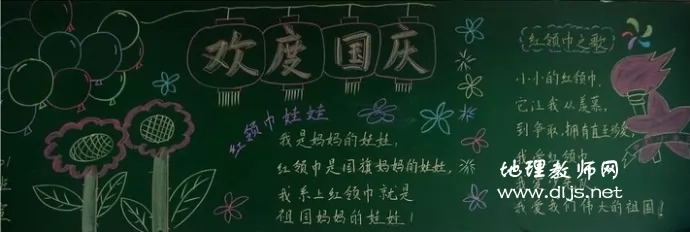 欢度国庆
红领巾娃娃
我是妈妈的娃娃,
红领巾是国旗妈妈的娃娃,
我系上红领巾就是
祖国妈妈的娃娃!
红领巾之歌
小小的红领巾,
它让我从羡慕,
到争取,拥有直至珍爱,
我爱红领巾
我爱
我爱我们伟大的祖国!
地理教师网
www.dljs.net